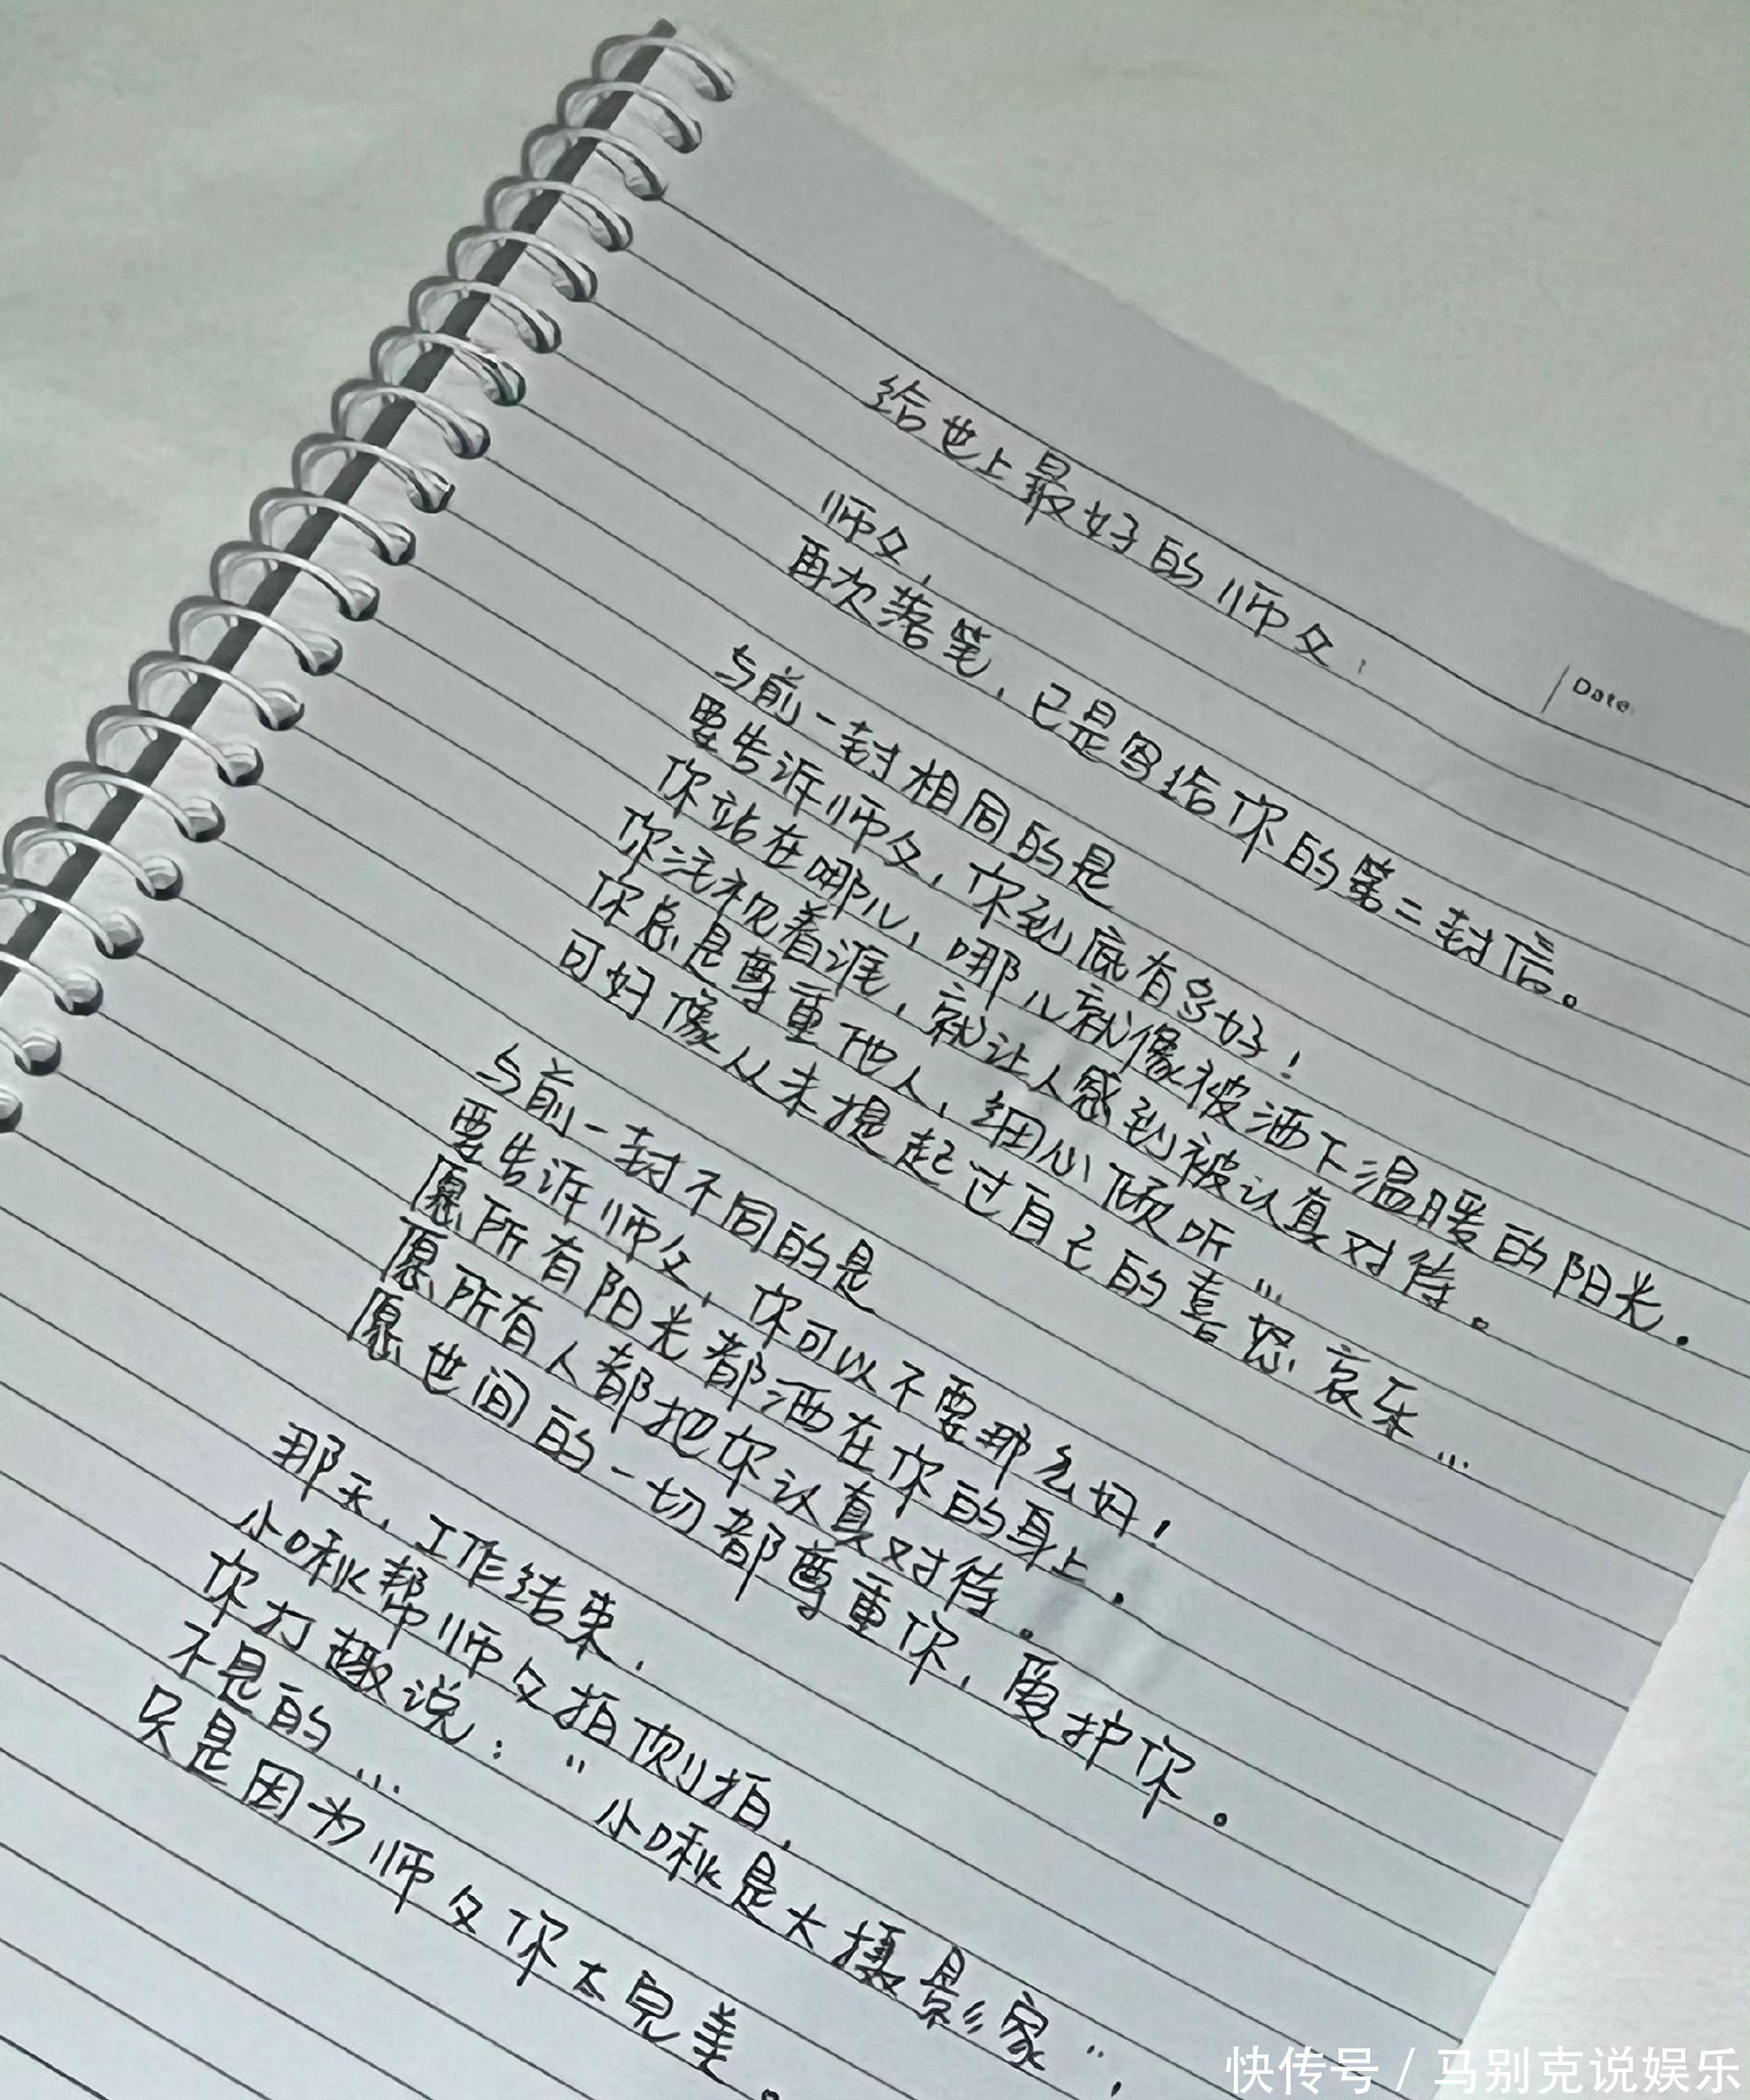 给世上最好的师父：
Date.
师父，
再次落笔，已是写给你的第二封信。
与前一封相同的是
要告诉师父，你到底有多好！
你站在哪儿，哪儿就像被洒下温暖的阳光。
你注视着谁，就让人感到被认真对待。
你总是尊重他人，细心倾听…
可好像从未提起过自己的喜怒哀乐…
与前一封不同的是
要告诉师父，你可以不要那么好！
愿所有阳光都洒在你的身上，
愿所有人都把你认真对待。
愿世间的一切都尊重你，爱护你。
那天，工作结束，
小啾帮师父拍侧拍，
你打趣说：“小啾是大摄影家”，
不是的…
只是因为师父你太完美。
快传号 / 马别克说娱乐